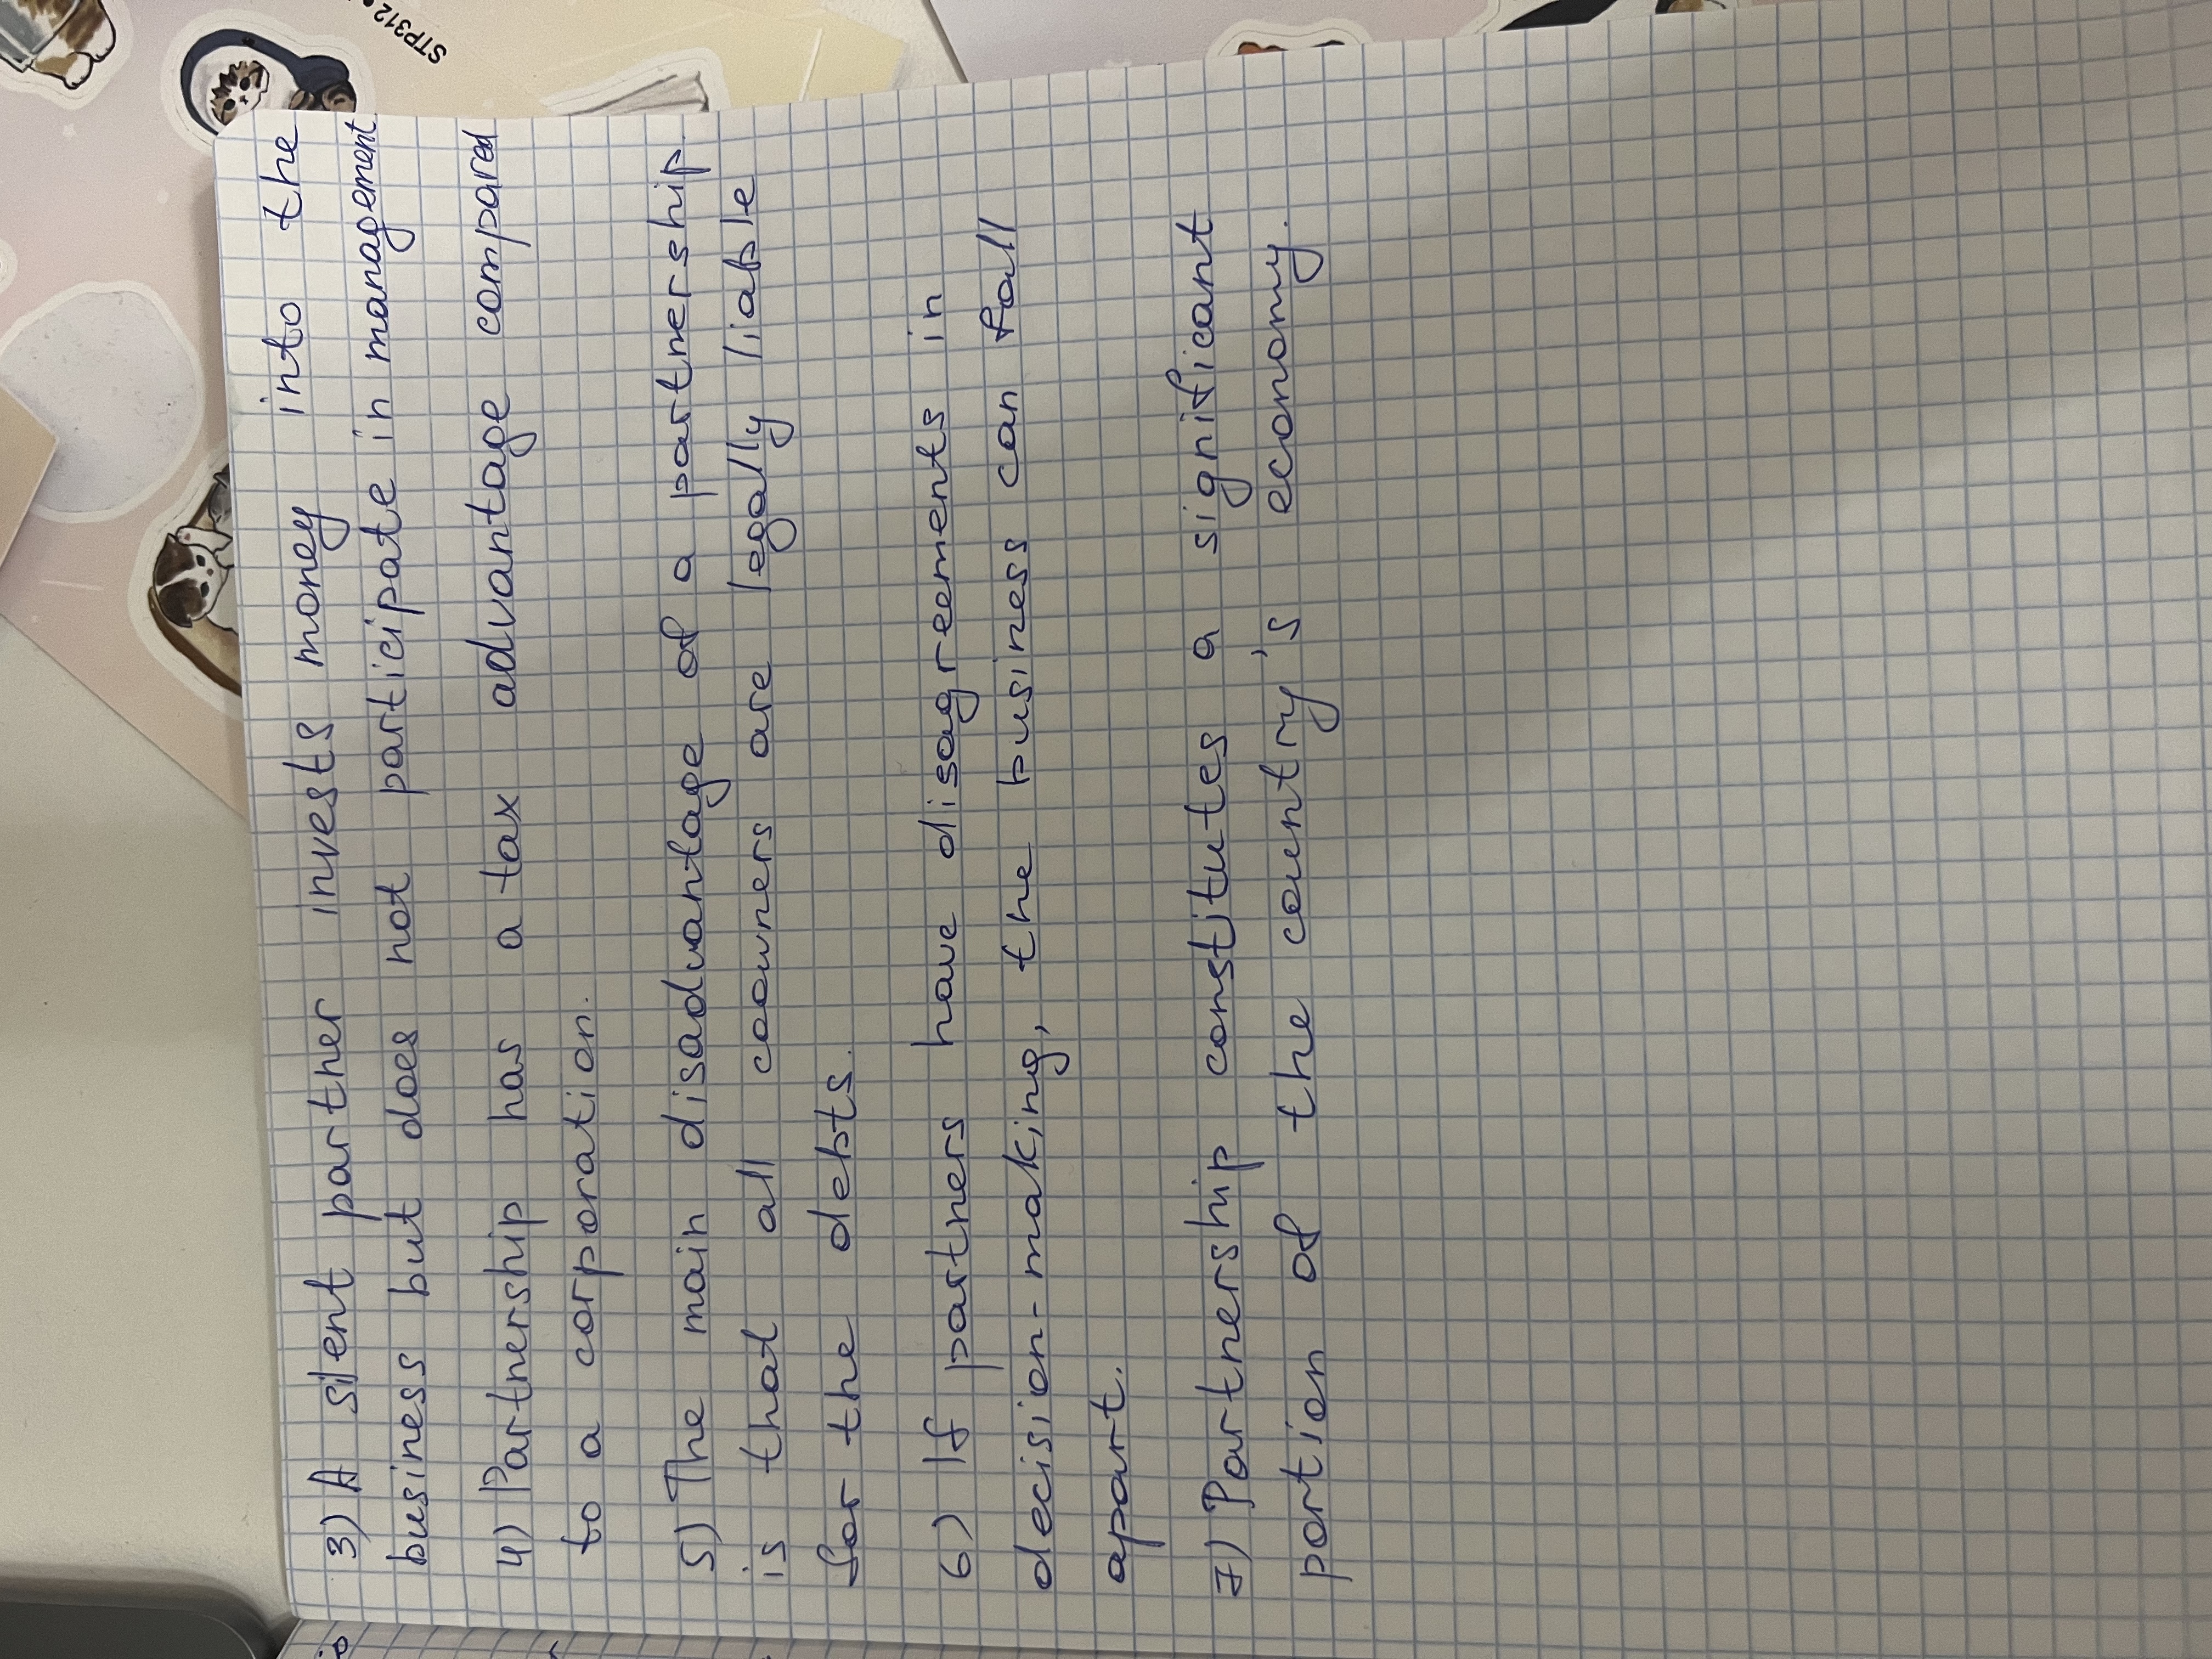 3) A silent partner invests money into the
business but does not participate in management
4) Partnership has a tax advantage compared
to a corporation.
5) The main disadvantage of a partnership
is that all coowners are legally liable
for the debts.
6) If partners have disagreements in
decision-making, the business can fall
apart.
7) Partnership constitutes a significant
portion of the country's economy.
STP312